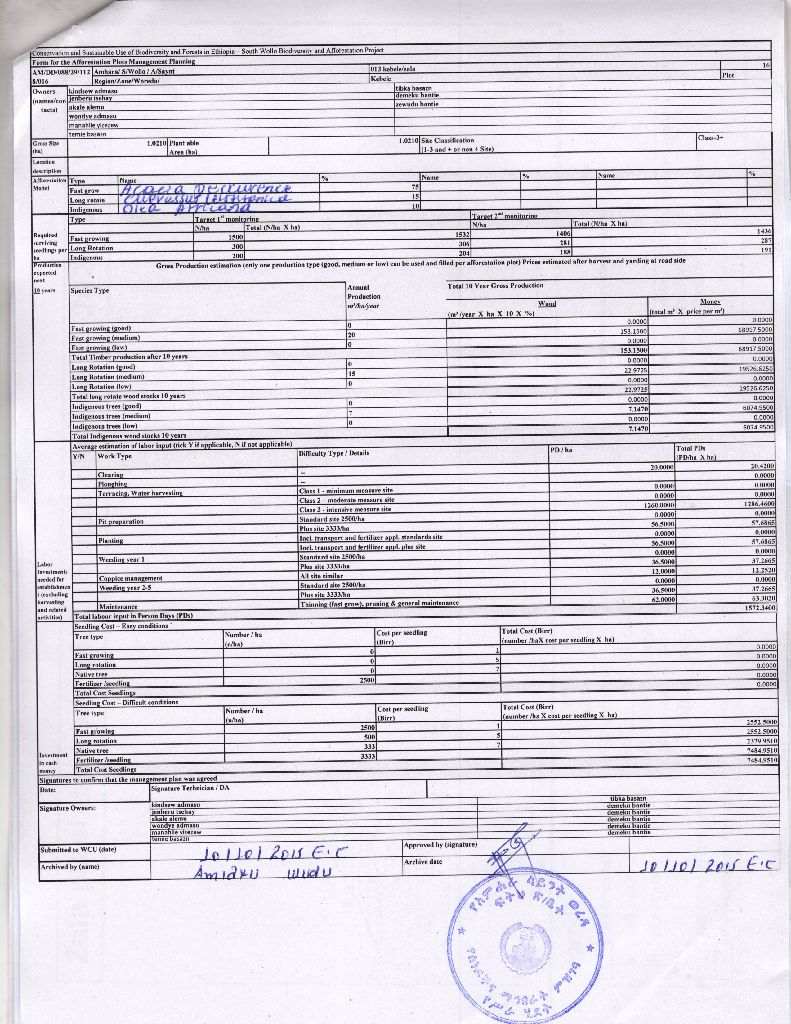 Conservation and Sustainable Use of Biodiversity and Forests in Ethiopia - South Wollo Biodiversity and Afforestation Project
Form for the Afforestation Plots Management Planning
AM/DD/088/29/112 Amhara/ S/Wollo / A/Saynt 013 kebele/zala 16
8/016 Region/Zone/Woreda/ Kebele Plot
Owners (names/con tacts)
kindsew admasu tibka basazn
jenberu tsehay demeku bantie
akale alemu zewudu bantie
wondye admasu
manahile yiezezew
temie basazn
Gross Size (ha) 1.0210 Plant able Area (ha) 1.0210 Site Classification (1-3 and + or non + Site) Class-3+
Location description
Afforestation Model Type Name % Name % Name %
Fast grow Acacia Decurence 75
Long rotate Cupressus Lusitanica 15
Indigenous Olea Africana 10
Required surviving seedlings per ha
Type Target 1st monitoring Target 2nd monitoring
N/ha Total (N/ha X ha) N/ha Total (N/ha X ha)
Fast growing 1500 1532 1406 1436
Long Rotation 300 306 281 287
Indigenous 200 204 188 191
Production expected next 10 years
Gross Production estimation (only one production type (good, medium or low) can be used and filled per afforestation plot) Prices estimated after harvest and yarding at road side
Species Type Annual Production m³/ha/year Total 10 Year Gross Production
Wood Money
(m³/year X ha X 10 X %) (total m³ X price per m³)
Fast growing (good) 0 0.0000 0.0000
Fast growing (medium) 20 153.1500 68917.5000
Fast growing (low) 0 0.0000 0.0000
Total Timber production after 10 years 153.1500 68917.5000
Long Rotation (good) 0 0.0000 0.0000
Long Rotation (medium) 15 22.9725 19526.6250
Long Rotation (low) 0 0.0000 0.0000
Total long rotate wood stocks 10 years 22.9725 19526.6250
Indigenous trees (good) 0 0.0000 0.0000
Indigenous trees (medium) 7 7.1470 6074.9500
Indigenous trees (low) 0 0.0000 0.0000
Total Indigenous wood stocks 10 years 7.1470 6074.9500
Labor Investments needed for establishment (excluding harvesting and related activities)
Average estimation of labor input (tick Y if applicable, N if not applicable)
Y/N Work Type Difficulty Type / Details PD / ha Total PDs (PD/ha X ha)
Clearing -- 20.0000 20.4200
Ploughing -- 0.0000
Terracing, Water harvesting Class 1 - minimum measure site 0.0000 0.0000
Class 2 - moderate measure site 0.0000 0.0000
Class 3 - intensive measure site 1260.0000 1286.4600
Pit preparation Standard site 2500/ha 0.0000 0.0000
Plus site 3333/ha 56.5000 57.6865
Planting Incl. transport and fertilizer appl. standards site 0.0000 0.0000
Incl. transport and fertilizer appl. plus site 56.5000 57.6865
Weeding year 1 Standard site 2500/ha 0.0000 0.0000
Plus site 3333/ha 36.5000 37.2665
Coppice management All site similar 12.0000 12.2520
Weeding year 2-5 Standard site 2500/ha 0.0000 0.0000
Plus site 3333/ha 36.5000 37.2665
Maintenance Thinning (fast grow), pruning & general maintenance 62.0000 63.3020
Total labour input in Person Days (PDs) 1572.3400
Seedling Cost – Easy conditions
Tree type Number / ha (n/ha) Cost per seedling (Birr) Total Cost (Birr) (number /haX cost per seedling X ha)
Fast growing 0 1 0.0000
Long rotation 0 5 0.0000
Native tree 0 7 0.0000
Fertilizer /seedling 2500 0.0000
Total Cost Seedlings 0.0000
Investment in cash money
Seedling Cost – Difficult conditions
Tree type Number / ha (n/ha) Cost per seedling (Birr) Total Cost (Birr) (number /ha X cost per seedling X ha)
Fast growing 2500 1 2552.5000
Long rotation 500 5 2552.5000
Native tree 333 7 2379.9510
Fertilizer /seedling 3333 7484.9510
Total Cost Seedlings 7484.9510
Signatures to confirm that the management plan was agreed
Date: Signature Technician / DA
Signature Owners:
kindsew admasu tibka basazn
jenberu tsehay demeku bantie
akale alemu demeku bantie
wondye admasu demeku bantie
manahile yiezezew demeku bantie
temie basazn demeku bantie
Submitted to WCU (date) 10/10/2015 E.C Approved by (signature)
Archived by (name) Amidku wudu Archive date 10/10/2015 E.C
የአምሐራ ሳይንት ወረዳ
ፍትህ ጽ/ቤት